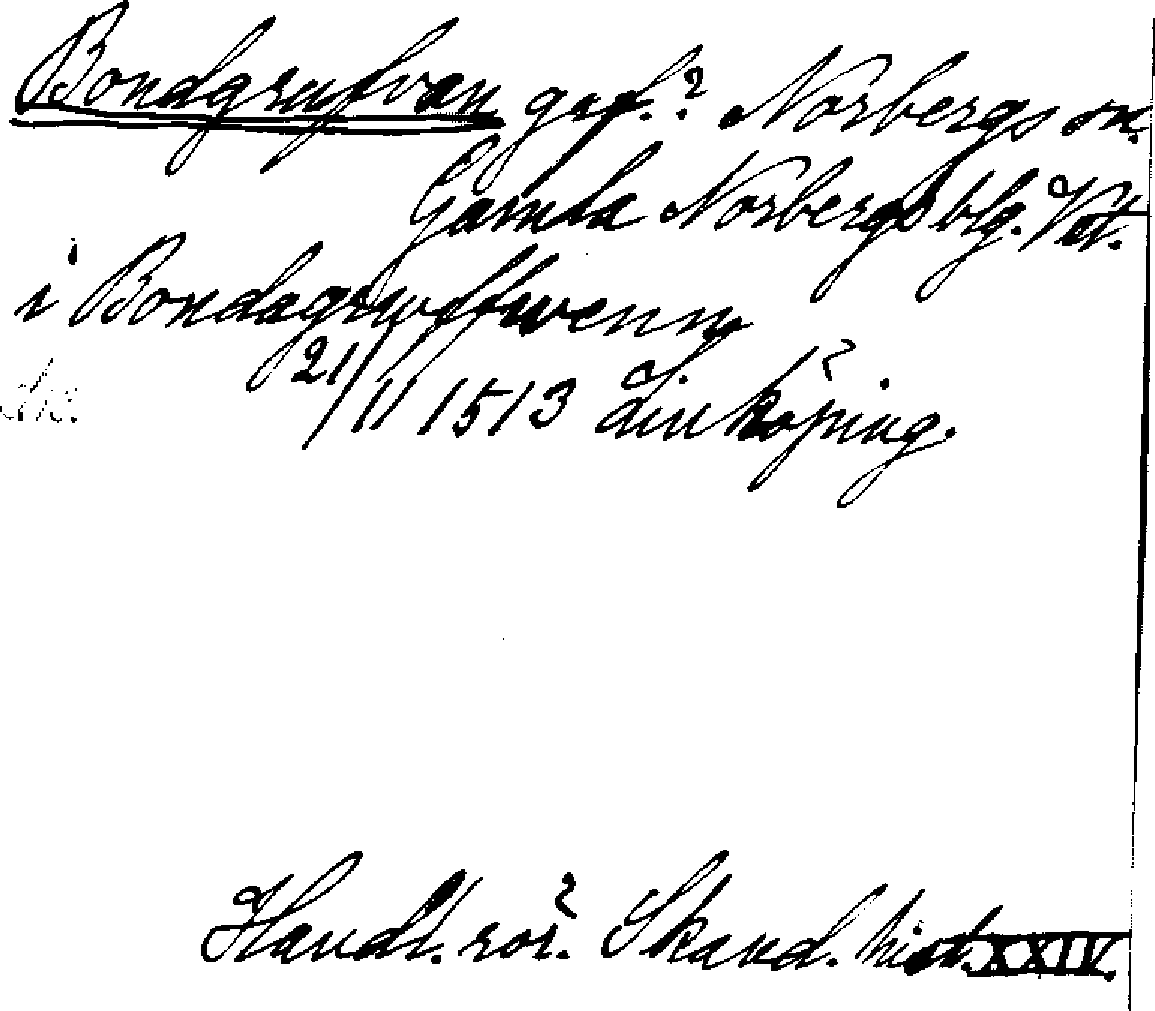 Bondgrufvan grf.? Norbergs sn.
Gamla Norbergs blg. Vstm.
i Bondagrwffwenn
21/11 1513 Linköping.
Handl. rör. Skand. hist. XXIV.